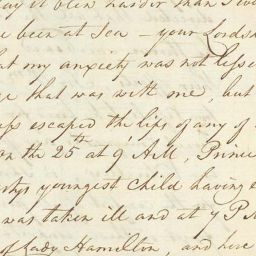 it been harder than I
been at Sea – your Lords
my anxiety was not lesse
that was with me, but
escaped the lips of any of
on the 25th at 9 AM, Prince
youngest child having e
was taken ill and at 7 P.M
of Lady Hamilton, and here